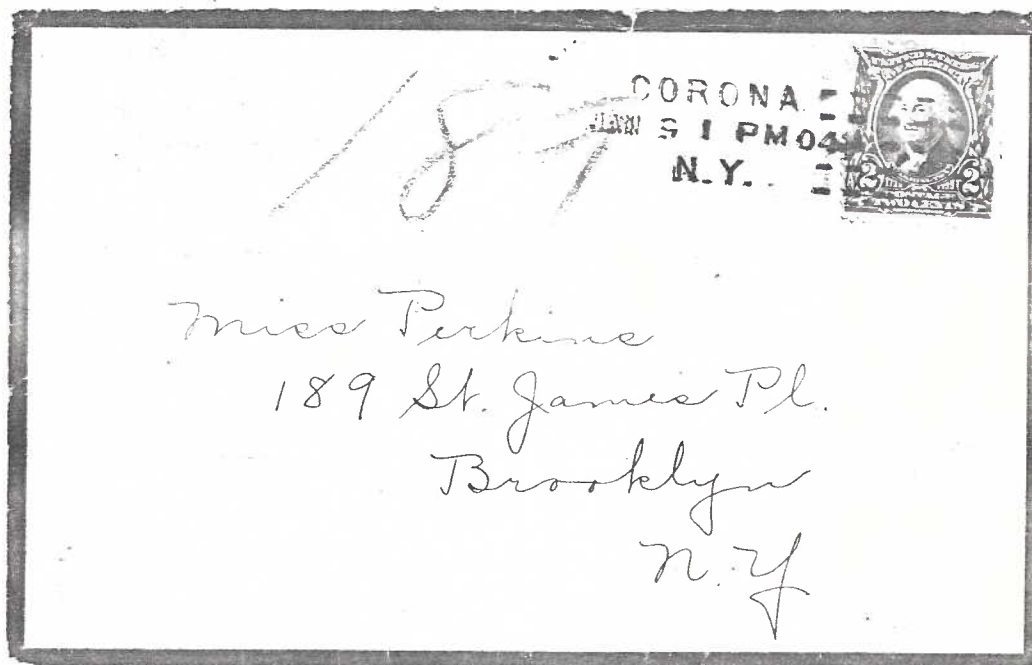 189
CORONA
JAN 9 1 PM 04
N.Y.
2 2
Miss Perkins
189 St. James Pl.
Brooklyn
N.Y